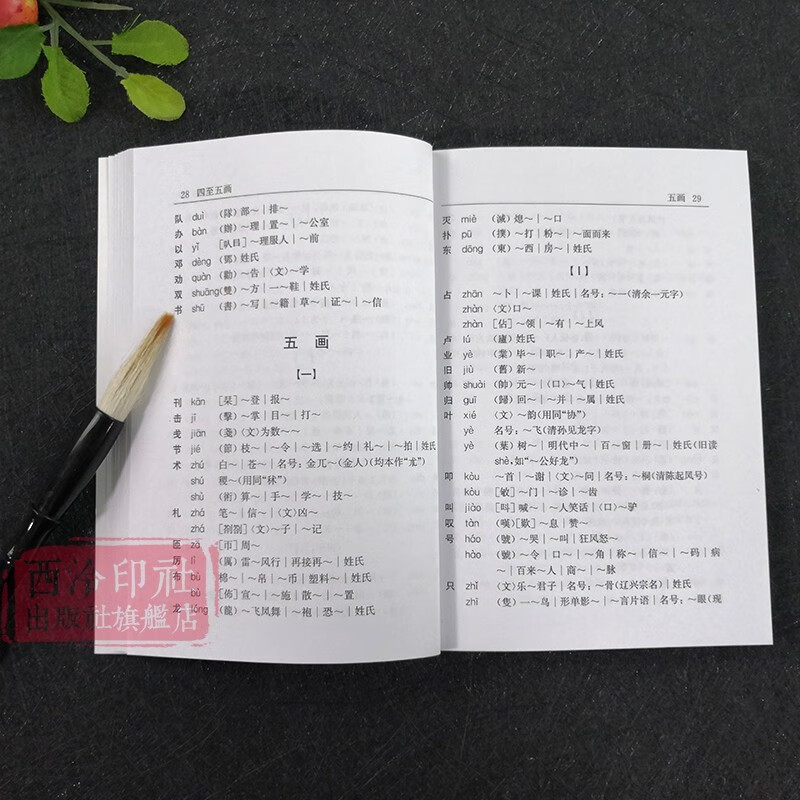 28 四至五画
队 duì (隊)部～｜排～
办 bàn (辦)～理｜置～｜～公室
以 yǐ [㕥目]～理服人｜～前
邓 dèng (鄧)姓氏
劝 quàn (勸)～告｜〈文〉～学
双 shuāng(雙)～方｜一～鞋｜姓氏
书 shū (書)～写｜～籍｜草～｜证～｜～信
五 画
【一】
刊 kān [栞]～登｜报～
击 jī (擊)～掌｜目～｜打～
戋 jiān (戔)〈文〉为数～～
节 jié (節)枝～｜～令｜～选｜～约｜礼～｜～拍｜姓氏
术 zhú 白～｜苍～｜名号：金兀～(金人)(均本作“朮”)
shú 稷～(用同“秫”)
shù (術)算～｜手～｜学～｜技～
札 zhá 笔～｜信～｜〈文〉凶～
zhá [剳劄]〈文〉～子｜～记
匝 zā [帀]周～
厉 lì (厲)雷～风行｜再接再～｜姓氏
布 bù 棉～｜～帛｜～币｜塑料～｜姓氏
bù [佈]宣～｜～施｜散～｜～置
龙 lóng (龍)～飞凤舞｜～袍｜恐～｜姓氏
五画 29
灭 miè (滅)熄～｜～口
扑 pū (撲)～打｜粉～｜～面而来
东 dōng (東)～西｜房～｜姓氏
【丨】
占 zhān ～卜｜～课｜姓氏｜名号：～一(清余一元字)
zhàn 〈文〉口～
zhàn [佔]～领｜～有｜～上风
卢 lú (盧)姓氏
业 yè (業)毕～｜职～｜产～｜姓氏
旧 jiù (舊)新～
帅 shuài (帥)元～｜〈口〉～气｜姓氏
归 guī (歸)回～｜～并｜～属｜姓氏
叶 xié 〈文〉～韵(用同“协”)
yè 名号：～飞(清孙见龙字)
yè (葉)树～｜明代中～｜百～窗｜册～｜姓氏(旧读
shè，如“～公好龙”)
叩 kòu ～首｜～谢｜〈文〉～问｜名号：～桐(清陈起凤号)
kòu [敂]～门｜～诊｜～齿
叫 jiào [呌]喊～｜～人笑话｜〈口〉～驴
叹 tàn (嘆)[歎]～息｜赞～
号 háo (號)～哭｜～叫｜狂风怒～
hào (號)～令｜口～｜～角｜称～｜信～｜～码｜病
～｜百来～人｜商～｜～脉
只 zhǐ 〈文〉乐～君子｜名号：～骨(辽兴宗名)｜姓氏
zhī (隻)一～鸟｜形单影～｜～言片语｜名号：～眼(现
西泠印社
出版社旗艦店